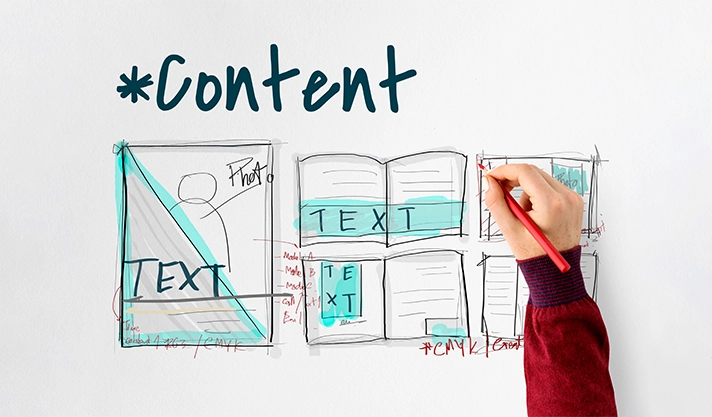 *Content
Photo
TEXT
TEXT
Photo
Mode A
Mode B
Mode C
TE
XT
RGB / CMYK
*CMYK /